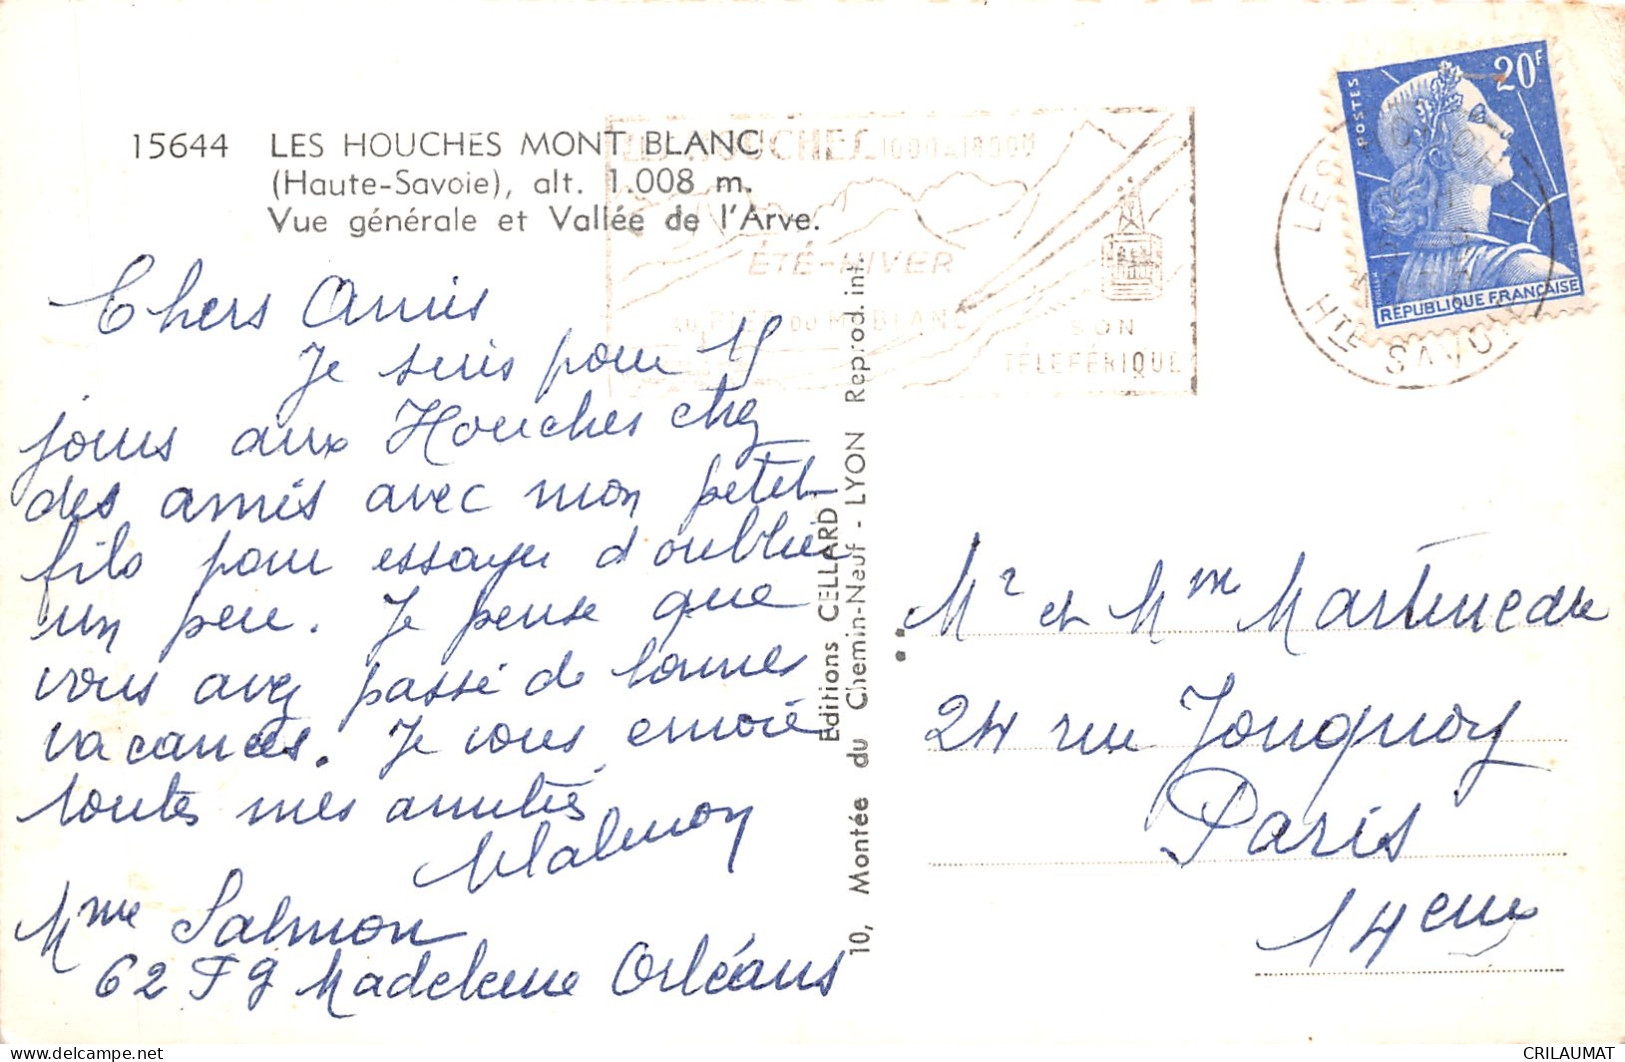 15644 LES HOUCHES MONT BLANC
(Haute-Savoie), alt. 1.008 m.
Vue générale et Vallée de l'Arve.
LES HOUCHES 1000-1800M
ÉTÉ-HIVER
AU PIED DU MT BLANC
SON
TÉLÉFÉRIQUE
POSTES
20F
RÉPUBLIQUE FRANÇAISE
LES HOUCHES
HTE SAVOIE
Chers Amis
Je suis pour 15
jours aux Houches chez
des amis avec mon petit
fils pour essayer d'oublier
un peu. Je pense que
vous avez passé de bonnes
vacances. Je vous envoie
toutes mes amitiés
Mme Salmon
62 Fg Madeleine Orléans
Editions CELLARD
10, Montée du Chemin-Neuf - LYON Reprod. int.
Mr et Mme Martineau
24 rue Jonquoy
Paris
14eme
CRILAUMAT